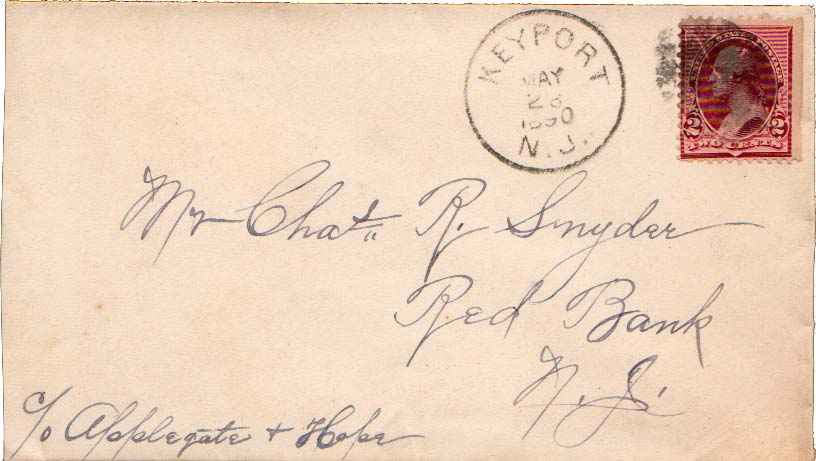 KEYPORT
MAY
28
1890
N. J.
UNITED STATES POSTAGE
2 2
TWO CENTS
Mr Chas. R. Snyder
Red Bank
N. J.
c/o Applegate + Hope